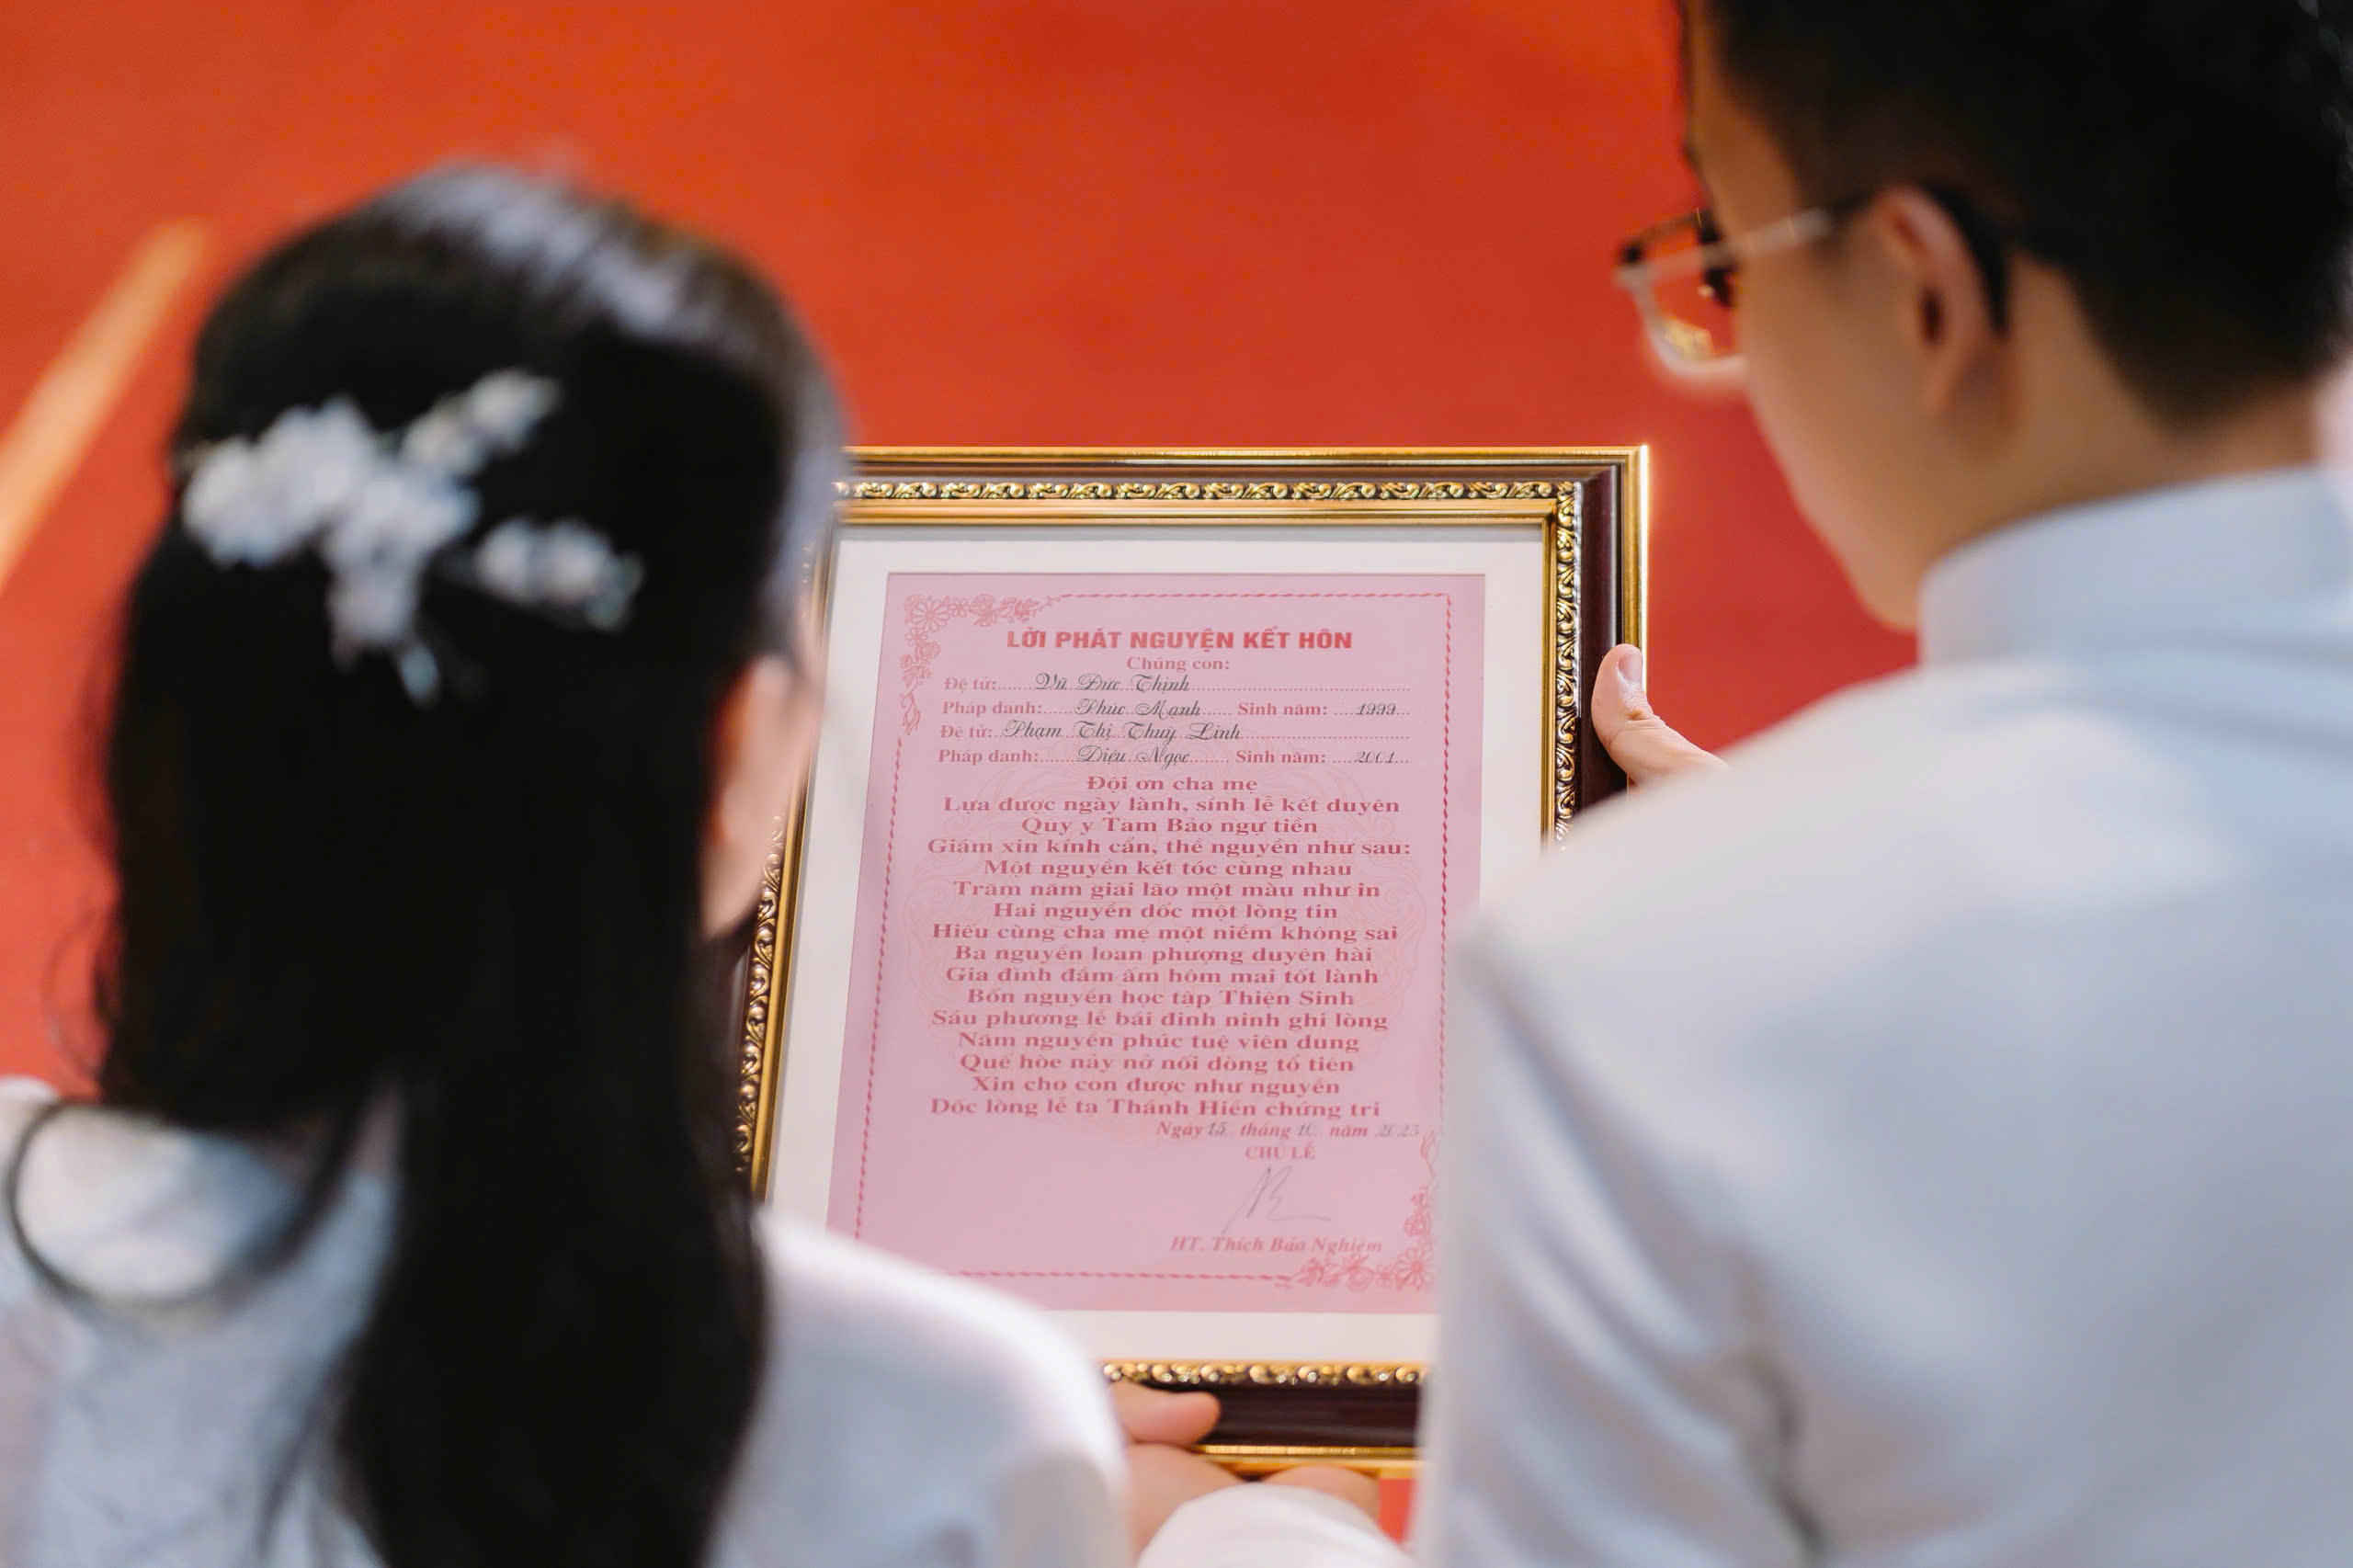 LỜI PHÁT NGUYỆN KẾT HÔN
Chúng con:
Đệ tử:......Vũ Đức Thịnh......
Pháp danh:......Phúc Mạnh...... Sinh năm: ....1999...
Đệ tử:..Phạm Thị Thuỳ Linh......
Pháp danh:......Diệu Ngọc....... Sinh năm: ....2001...
Đội ơn cha mẹ
Lựa được ngày lành, sính lễ kết duyên
Quy y Tam Bảo ngự tiền
Giám xin kính cẩn, thề nguyền như sau:
Một nguyền kết tóc cùng nhau
Trăm năm giai lão một màu như in
Hai nguyền dốc một lòng tin
Hiếu cùng cha mẹ một niềm không sai
Ba nguyền loan phượng duyên hài
Gia đình đầm ấm hôm mai tốt lành
Bốn nguyền học tập Thiện Sinh
Sáu phương lễ bái đinh ninh ghi lòng
Năm nguyền phúc tuệ viên dung
Quế hòe nảy nở nối dòng tổ tiên
Xin cho con được như nguyền
Dốc lòng lễ tạ Thánh Hiền chứng tri
Ngày 15 tháng 10 năm 2025
CHỦ LỄ
HT. Thích Bảo Nghiêm